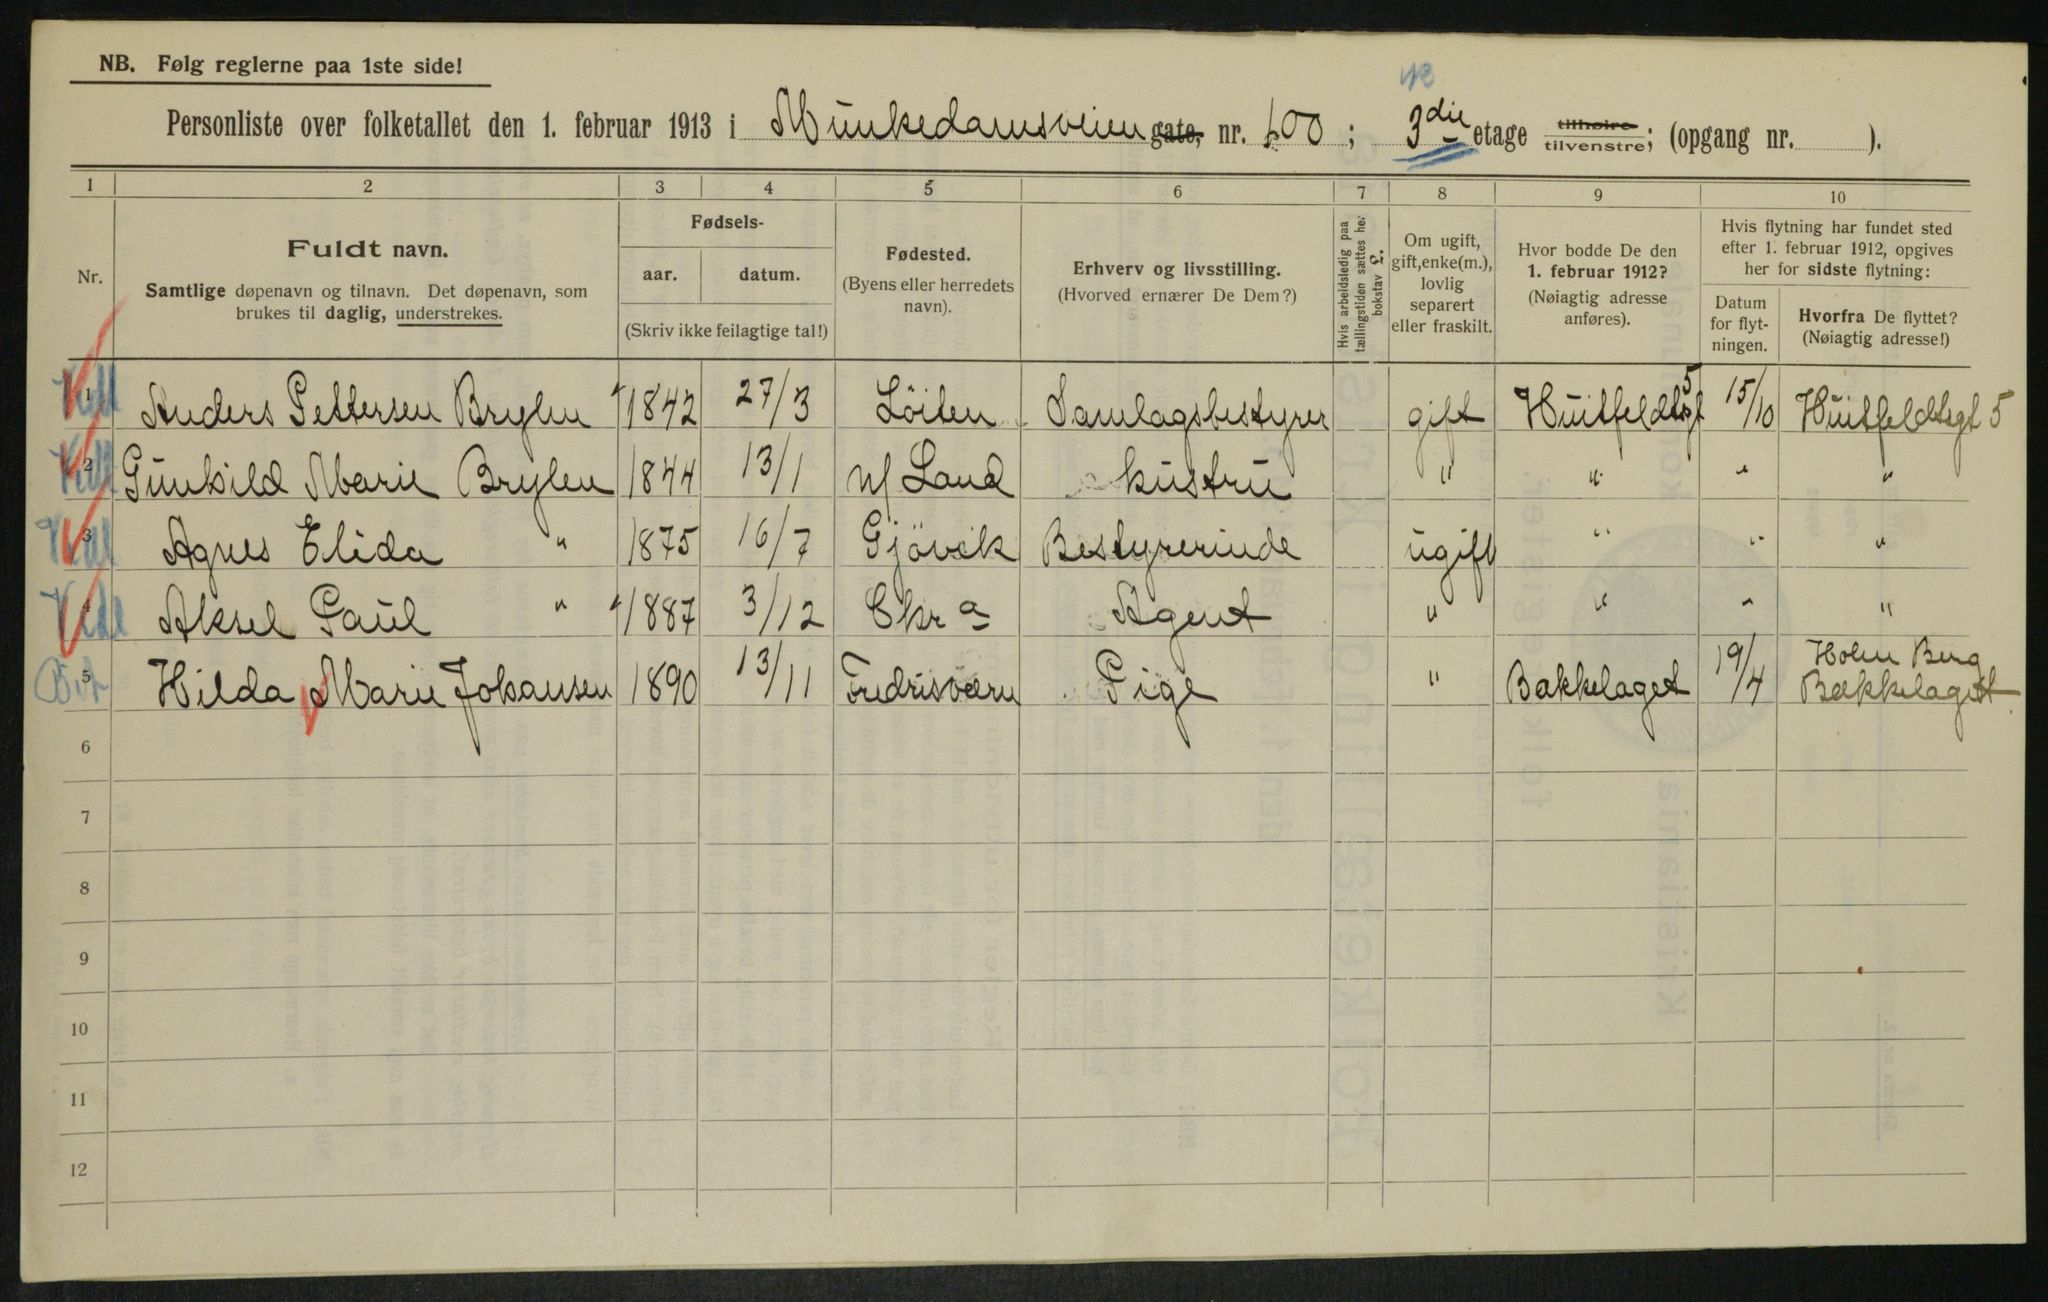 NB. Følg reglerne paa 1ste side!
Personliste over folketallet den 1. februar 1913 i Munkedamsveien gate, nr. 100 ; 3die etage tilhøire tilvenstre; (opgang nr. ).
1 2 3 4 5 6 7 8 9 10
Nr.
Fuldt navn.
Samtlige døpenavn og tilnavn. Det døpenavn, som
brukes til daglig, understrekes.
Fødsels-
aar. datum.
(Skriv ikke feilagtige tal!)
Fødested.
(Byens eller herredets
navn).
Erhverv og livsstilling.
(Hvorved ernærer De Dem?)
Hvis arbeidsledig paa
tællingstiden sættes her
bokstav L.
Om ugift,
gift, enke(m.),
lovlig
separert
eller fraskilt.
Hvor bodde De den
1. februar 1912?
(Nøiagtig adresse
anføres).
Hvis flytning har fundet sted
efter 1. februar 1912, opgives
her for sidste flytning:
Datum
for flyt-
ningen.
Hvorfra De flyttet?
(Nøiagtig adresse!)
1 Anders Pettersen Brylen 1842 27/3 Löiten Samlagsbestyrer gift Huitfeldtsgt 5 15/10 Huitfeldtsgt 5
2 Gunhild Marie Brylen 1844 13/1 N/ Land Hustru " " " "
3 Agnes Elida " 1875 16/7 Gjövik Bestyrerinde ugift " " "
4 Aksel Paul " 1887 3/12 Chra Agent " " " "
5 Hilda Marie Johansen 1890 13/11 Fredrisværn Pige " Bakkelaget 19/4 Holm Berg
Bækkelaget
6
7
8
9
10
11
12